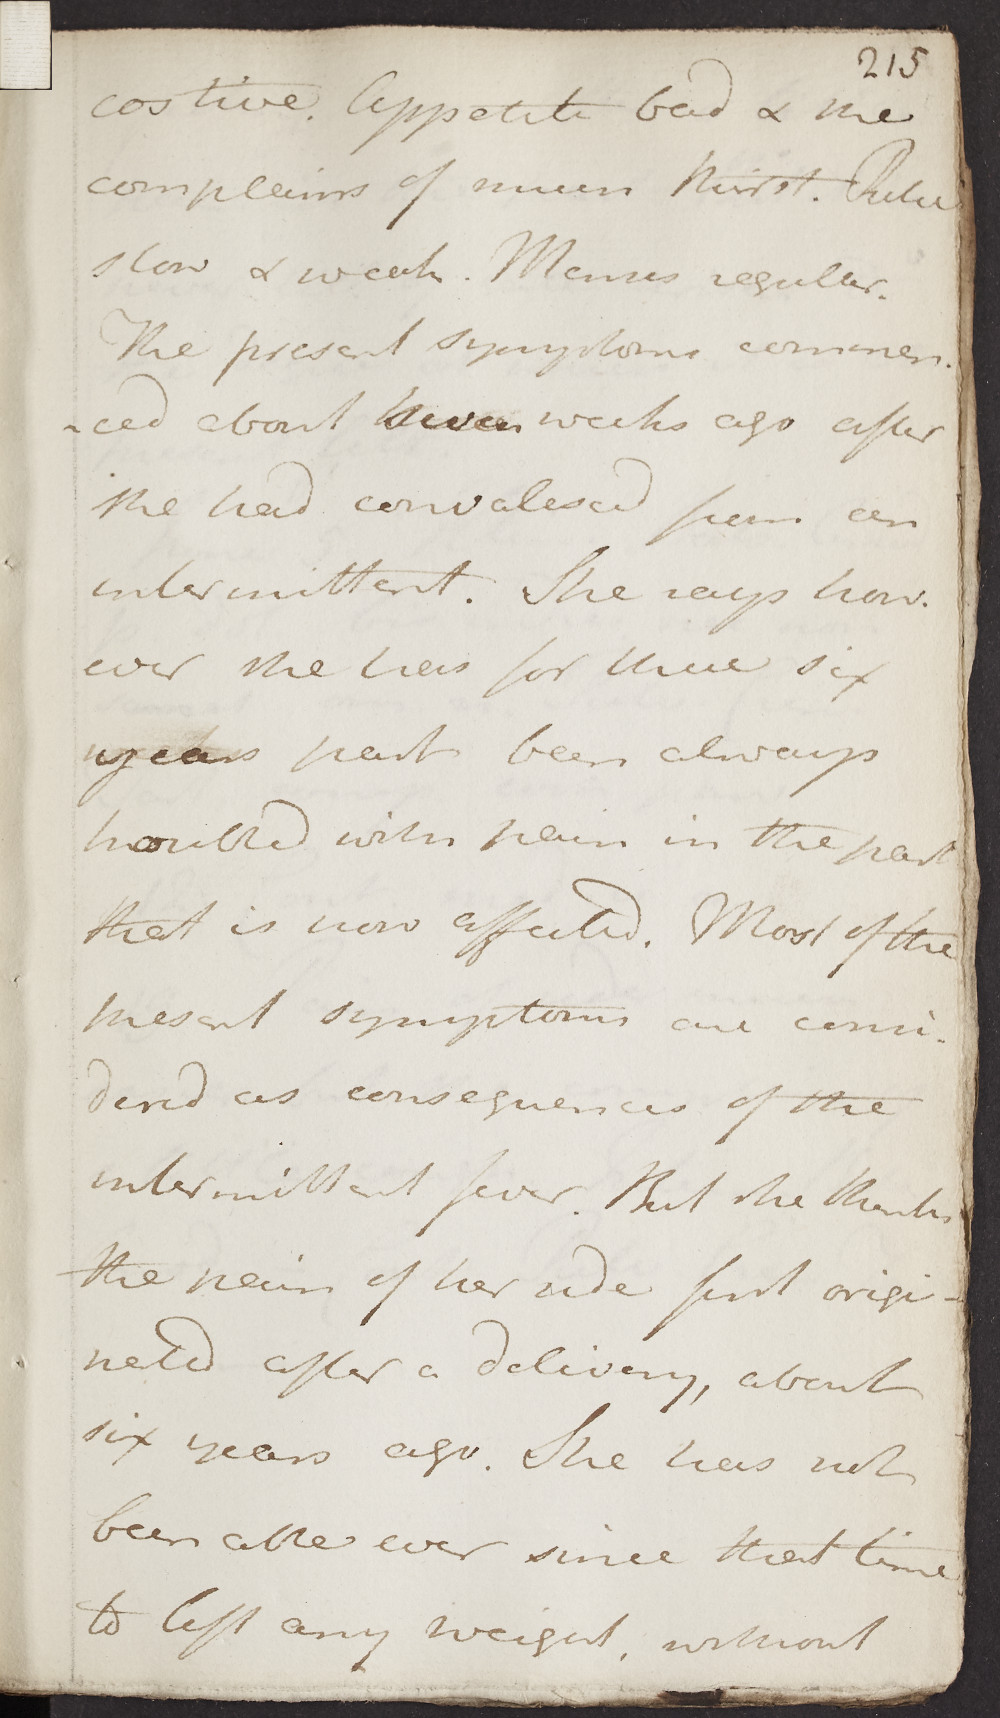 215
costive. Appetite bad & she
complains of much thirst. Pulse
slow & weak. Menses regular.
The present symptoms commen-
-ced about seven weeks ago after
she had convalesced from an
intermittent. She says how-
ever she has for these six
years past been always
troubled with pain in the part
that is now affected. Most of the
present symptoms are consi-
dered as consequences of the
intermittent fever. But she thinks
the pain of her side first origi-
nated after a delivery, about
six years ago. She has not
been able ever since that time
to lift any weight, without